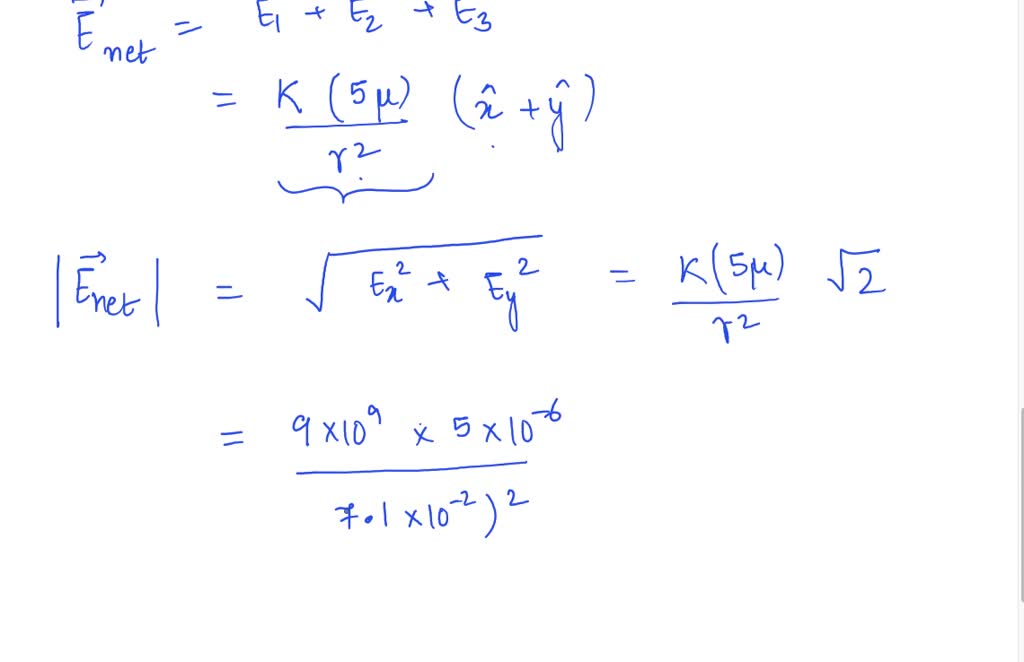 E⃗net = E1 + E2 + E3
= K (5μ) / r² (x̂ + ŷ)
|E⃗net| = √(Ex² + Ey²) = K(5μ) / r² √2
= 9×10⁹ × 5×10⁻⁶ / 7.1×10⁻²)²